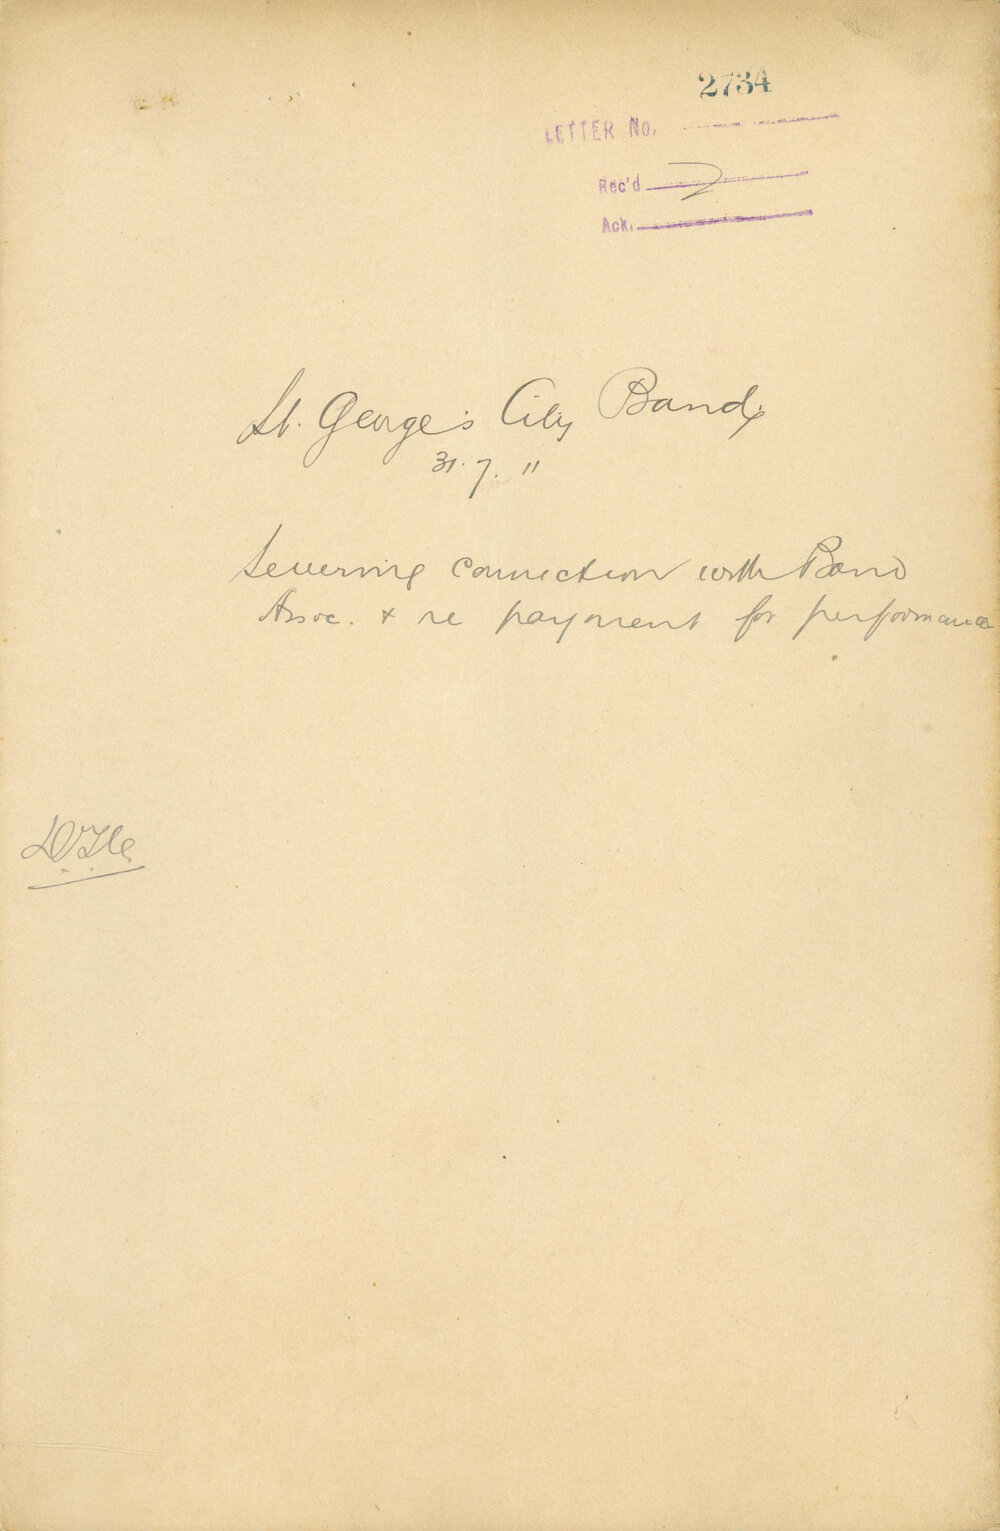 2734
LETTER No.
Rec'd
Ack.
St. George's City Band.
31. 7. 11
Severing connection with Band
Assoc. & re payment for performance